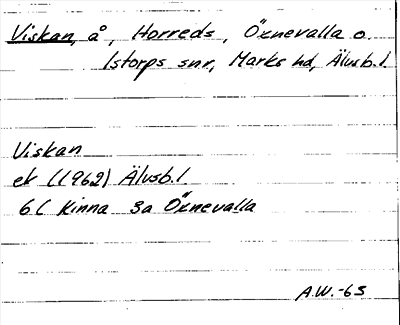 Viskan, å, Horreds, Öxnevalla o.
Istorps snr, Marks hd, Älvsb.l.
Viskan
ek (1962) Älvsb.l.
6C Kinna 3a Öxnevalla
A.W.-63